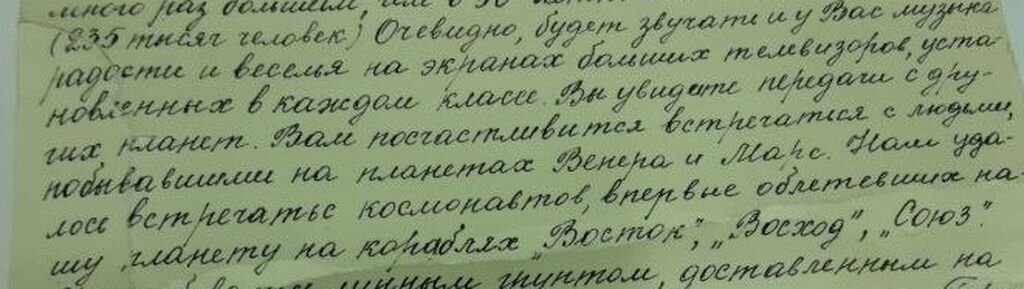 много раз большем, чем в 50
(235 тысяч человек.) Очевидно, будет звучать и у Вас музыка
радости и веселья на экранах больших телевизоров, уста-
новленных в каждом классе. Вы увидите передачи с дру-
гих планет. Вам посчастливится встречаться с людьми,
побывавшими на планетах Венера и Марс. Нам уда-
лось встречатьс космонавтов, впервые облетевших на-
шу планету на кораблях „Восток", „Восход", „Союз".
грунтом, доставленным на